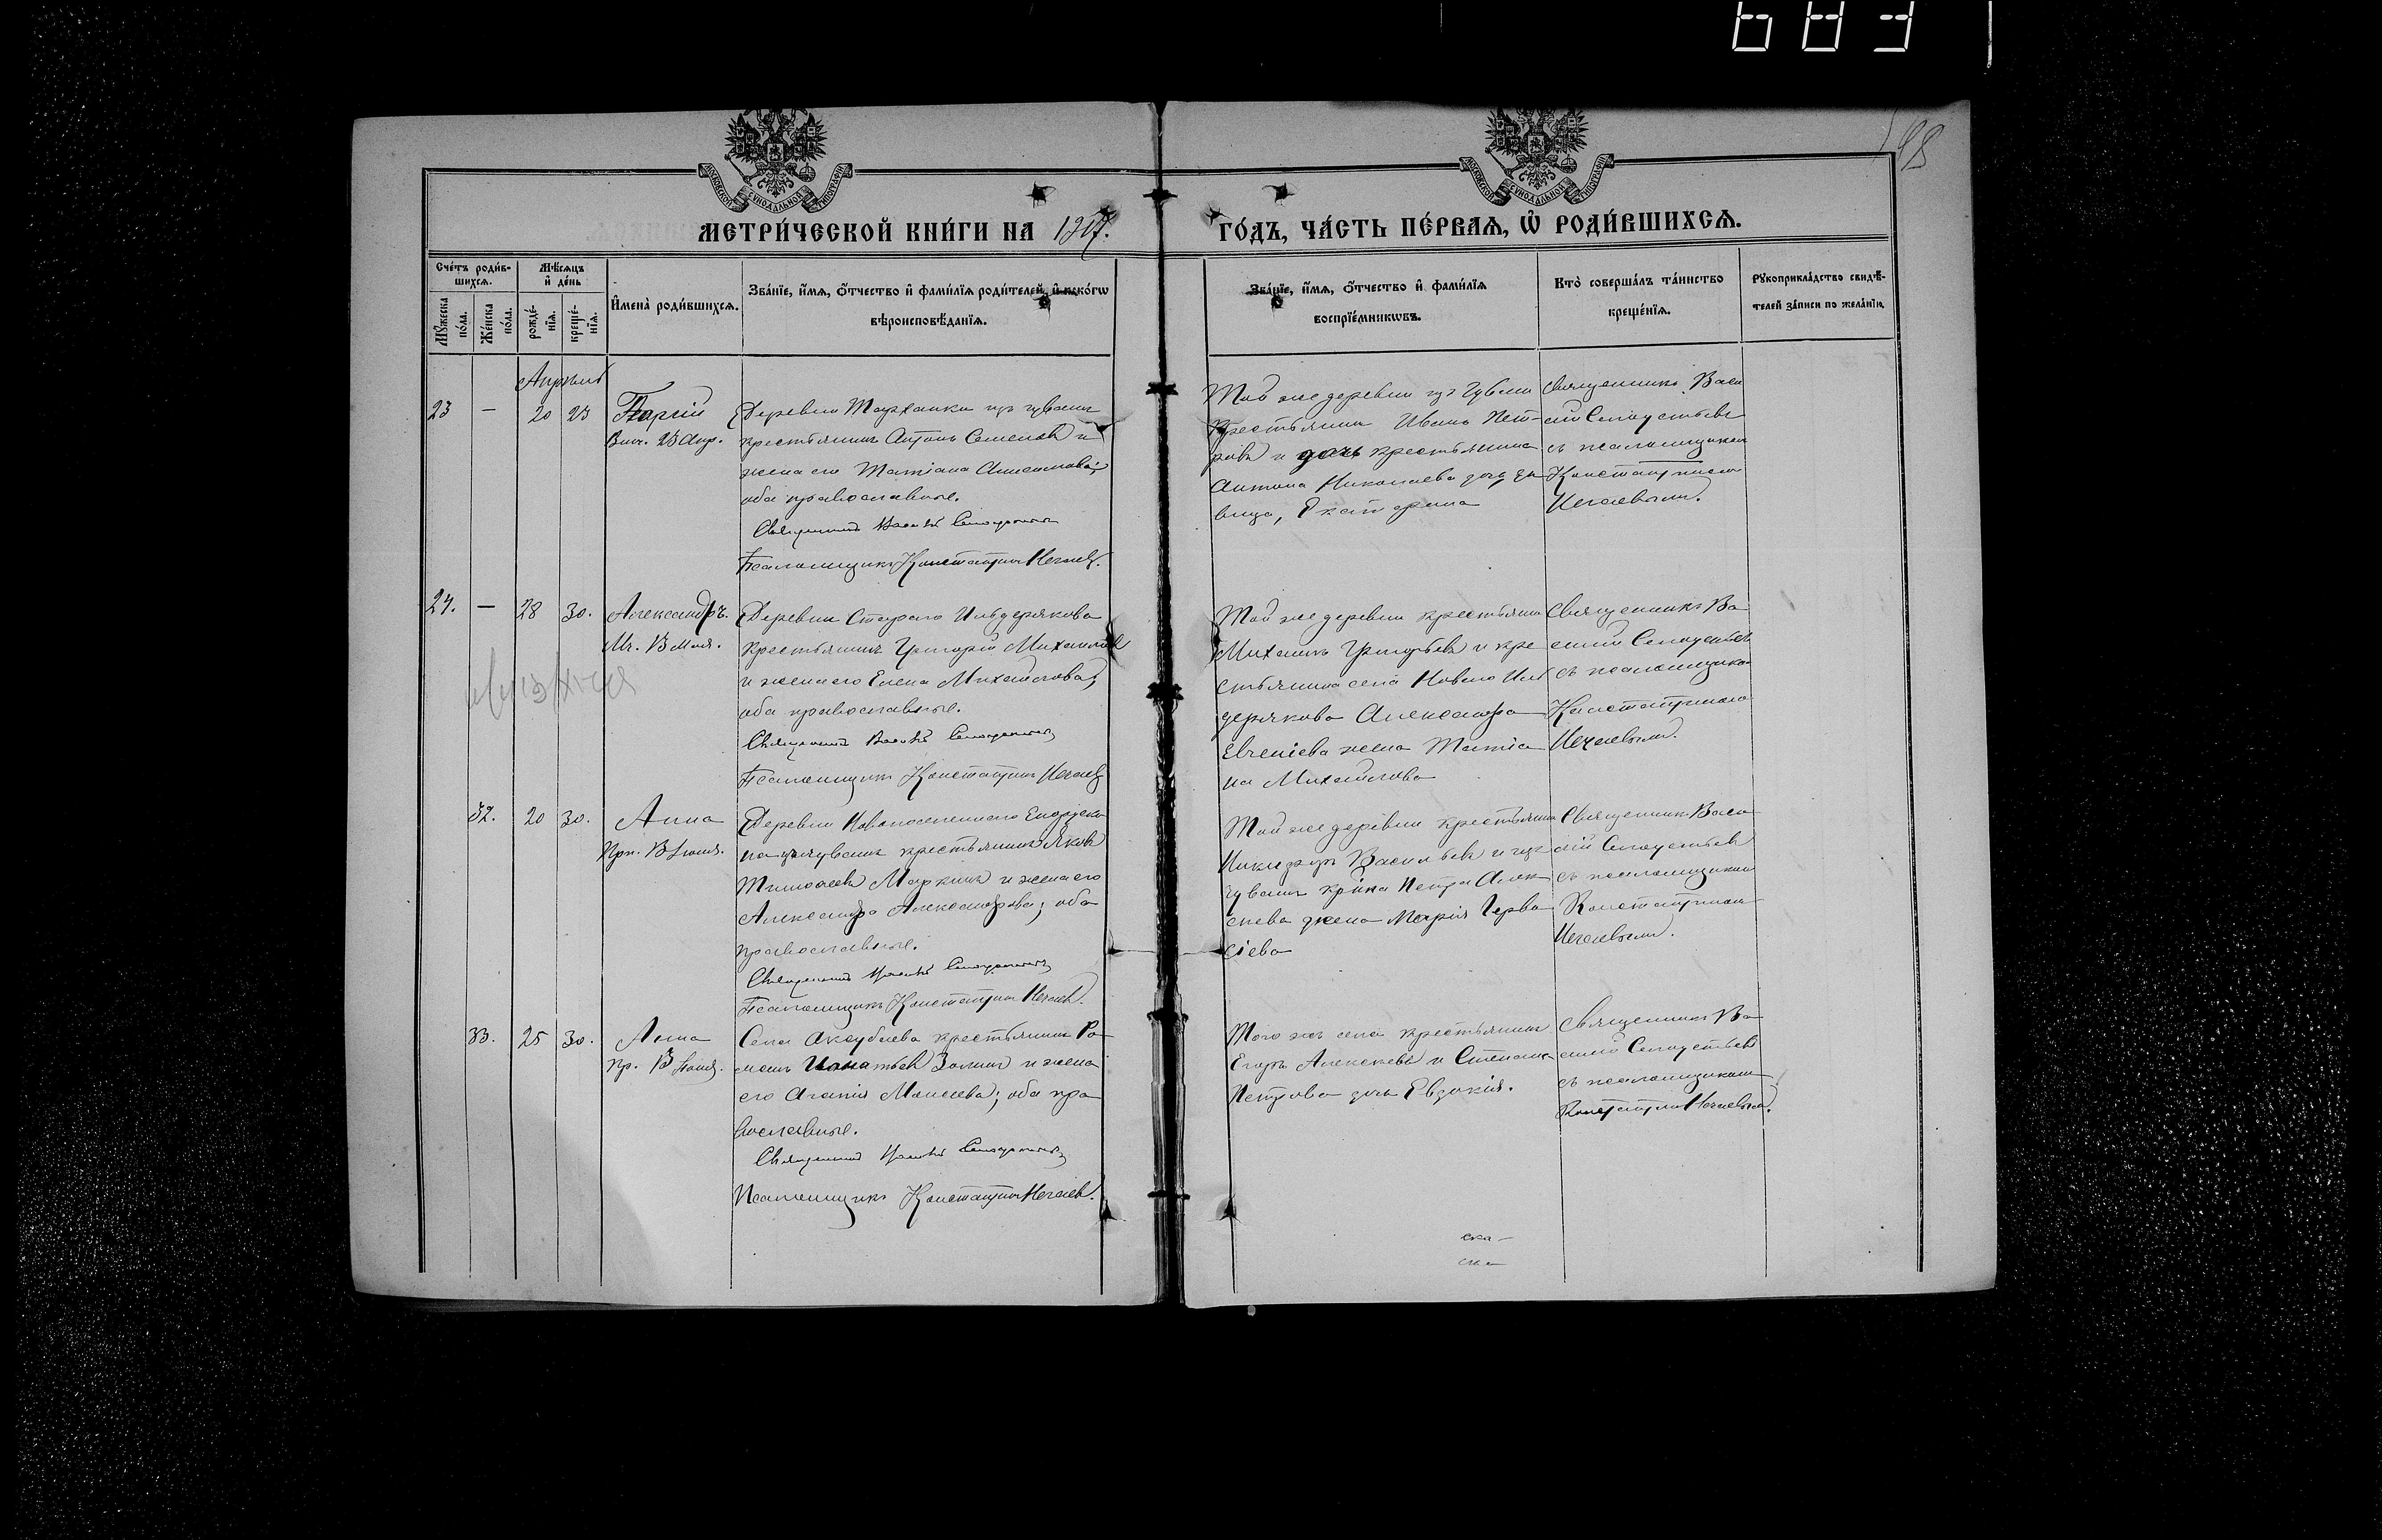 98
МОСКОВСКОЙ СѴНОДАЛЬНОЙ ТИПОГРАФІИ
МОСКОВСКОЙ СѴНОДАЛЬНОЙ ТИПОГРАФІИ
МЕТРИ́ЧЕСКОЙ КНИ́ГИ НА 1917. ГО́ДЪ, ЧА́СТЬ ПЕ́РВАЯ, Ѽ РОДИ́ВШИХСЯ.
Сче́тъ роди́в-
шихся.
Мѣ́сяцъ
и҆ де́нь
Мꙋ́жеска
по́ла.
Же́нска
по́ла.
рожде́-
нїя.
креще́-
нїя.
И҆мена̀ роди́вшихся.
Зва́нїе, и҆́мя, ѻ҆́тчество и҆ фами́лїя роди́телей, и҆ како́гѡ
вѣроисповѣ́данїя.
Зва́нїе, и҆́мя, ѻ҆́тчество и҆ фами́лїя
воспрїе́мникѡвъ.
Кто̀ соверша́лъ та́инство
креще́нїя.
Рꙋкоприкла́дство свидѣ́-
телей за́писи по жела́нїю.
Апрѣль
23 — 20 23
Георгій
Вмч. 23 Апр.
Деревни изъ чувашъ
крестьянинъ Антонъ Семеновъ и
жена его Татіана
оба православные.
Священникъ Василій
Псаломщикъ Константинъ Нечаевъ.
Той же деревни изъ чувашъ
крестьянинъ Иванъ Пет-
ровъ и дочь крестьянина
Антона Николаева дочь дѣ-
вица, Екатерина
Священникъ Васи
лій
съ псаломщикомъ
Константиномъ
Нечаевымъ.
24. — 28 30.
Александръ.
Мч. 13 Мая.
Деревни Стараго Ильдерякова
крестьянинъ Григорій Михайловъ
и жена его Елена Михайлова;
оба православные.
Священникъ Василій
Псаломщикъ Константинъ Нечаевъ
Той же деревни крестьянинъ
Михаилъ Григорьевъ и кре
стьянина села Новаго Иль
дерякова Александра
Евгеніева жена Татіа
на Михайлова
Священникъ Ва
силій
съ псаломщикомъ
Константиномъ
Нечаевымъ.
32. 20 30.
Анна
Прп. 13 Іюня.
Деревни Новопоселеннаго
изъ чувашъ крестьянинъ Яковъ
Тимоѳеевъ Маркинъ и жена его
Александра Александрова; оба
православные.
Священникъ Василій
Псаломщикъ Константинъ Нечаевъ.
Той же деревни крестьянинъ
Никифоръ Васильевъ и изъ
чувашъ кр-на Петра Алек
сѣева жена Марія Герва
сіева
Священникъ Васи
лій
съ псаломщикомъ
Константиномъ
Нечаевымъ.
33. 25 30.
Анна
Пр. 13 Іюня.
Села Аксубаева крестьянинъ Ро
манъ Игнатьевъ Золинъ и жена
его Агапія Моисеева; оба пра
вославные.
Священникъ Василій
Псаломщикъ Константинъ Нечаевъ.
Того же села крестьянинъ
Егоръ Алексѣевъ и Степана
Петрова дочь Евдокія.
Священникъ Ва
силій
съ псаломщикомъ
Константиномъ Нечаевымъ.